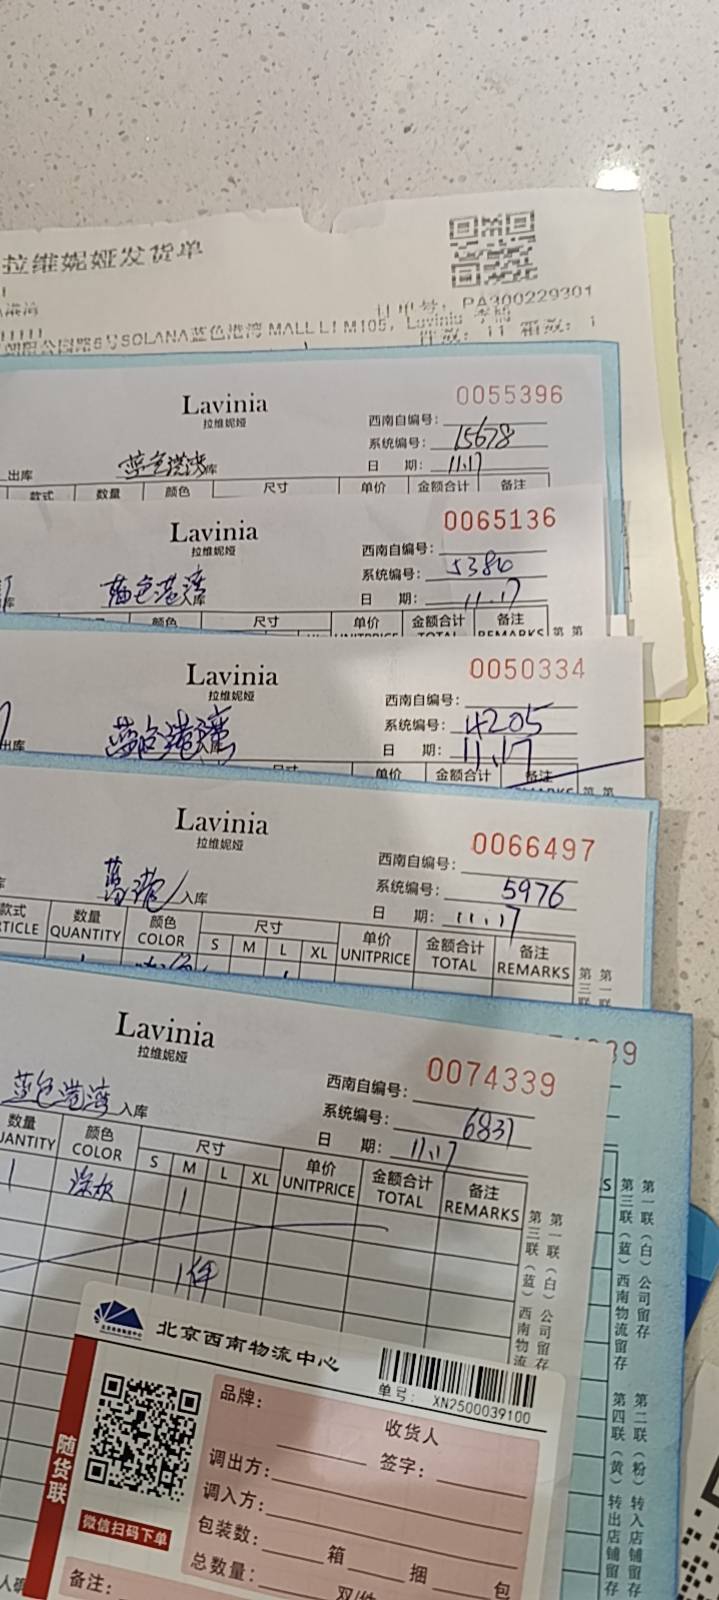 拉维妮娅发货单
港湾
PA300229301
朝阳公园路6号SOLANA蓝色港湾 MALL L1 M105, Lavinia 李
件数: 11 箱数: 1
Lavinia
拉维妮娅
0055396
西南自编号:
系统编号: 15678
日 期: 11.17
出库 蓝色港湾 库
款式 数量 颜色 尺寸 单价 金额合计 备注
Lavinia
拉维妮娅
0065136
西南自编号:
系统编号: 5384
日 期: 11.17
库 蓝色港湾 入库
颜色 尺寸 单价 金额合计 备注
UNITPRICE TOTAL REMARKS 第 第
Lavinia
拉维妮娅
0050334
西南自编号:
系统编号: 4205
日 期: 11.17
出库 蓝色港湾
尺寸 单价 金额合计 备注
第 第
Lavinia
拉维妮娅
0066497
西南自编号:
系统编号: 5976
日 期: 11.17
库 蓝港 入库
款式 数量 颜色 尺寸 单价 金额合计 备注
TICLE QUANTITY COLOR S M L XL UNITPRICE TOTAL REMARKS
第三联
第一联
39
Lavinia
拉维妮娅
0074339
西南自编号:
系统编号: 6831
日 期: 11.17
蓝色港湾 入库
数量 颜色 尺寸 单价 金额合计 备注
UANTITY COLOR S M L XL UNITPRICE TOTAL REMARKS
1 深灰 1
1件
第一联(白)公司留存
第三联(蓝)西南物流
S
第一联(白)公司留存
第三联(蓝)西南物流留存
第二联(粉)转入店铺留存
第四联(黄)转出店铺留存
北京西南物流中心
单号: XN2500039100
随货联
微信扫码下单
品牌: 收货人
签字:
调出方:
调入方:
包装数: 箱 捆 包
总数量: 双/件
备注: